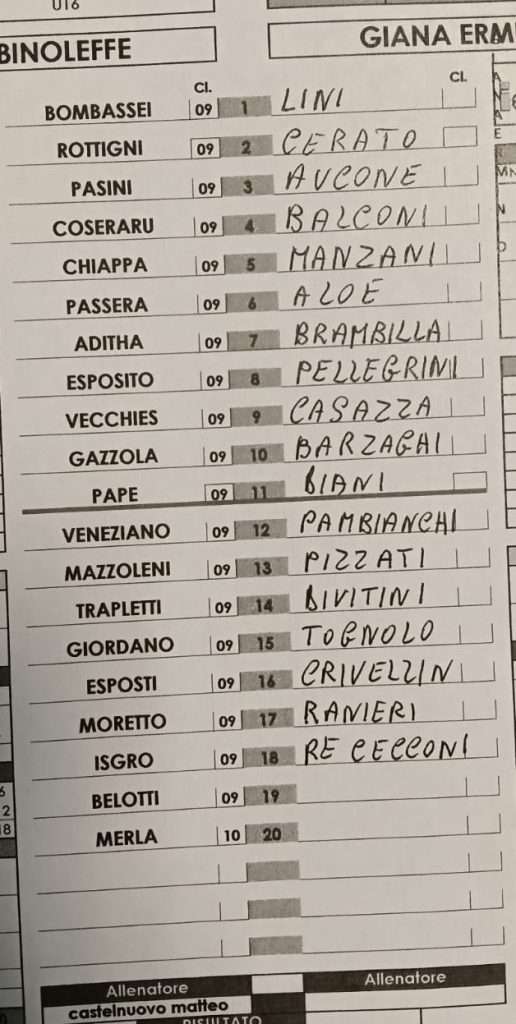 U16
BINOLEFFE GIANA ERMI
Cl. Cl.
BOMBASSEI 09 1 LINI
ROTTIGNI 09 2 CERATO
PASINI 09 3 AUCONE
COSERARU 09 4 BALCONI
CHIAPPA 09 5 MANZANI
PASSERA 09 6 ALOE
ADITHA 09 7 BRAMBILLA
ESPOSITO 09 8 PELLEGRINI
VECCHIES 09 9 CASAZZA
GAZZOLA 09 10 BARZAGHI
PAPE 09 11 BIANI
VENEZIANO 09 12 PAMBIANCHI
MAZZOLENI 09 13 PIZZATI
TRAPLETTI 09 14 BIVITINI
GIORDANO 09 15 TOGNOLO
ESPOSTI 09 16 CRIVELLIN
MORETTO 09 17 RANIERI
ISGRO 09 18 RE CECCONI
BELOTTI 09 19
MERLA 10 20
Allenatore Allenatore
castelnuovo matteo
RISULTATO